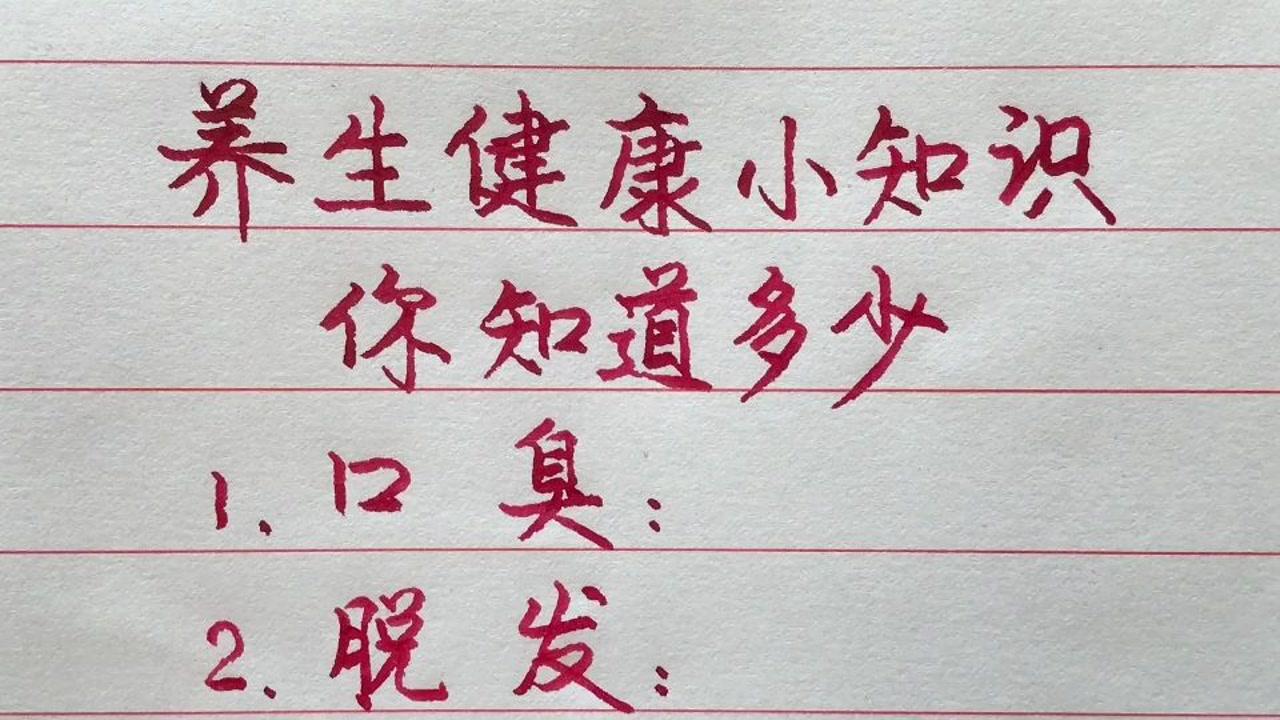 养生健康小知识
你知道多少
1.口臭:
2.脱发: